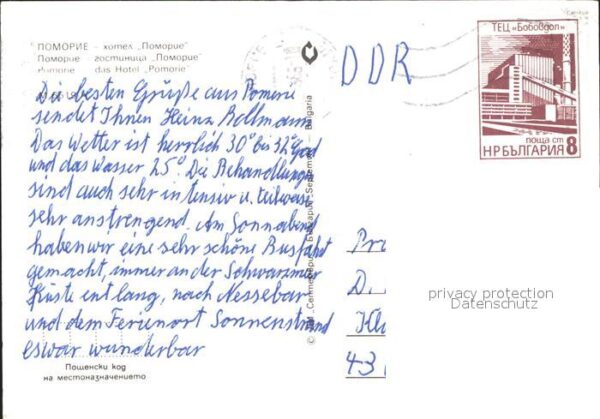 ПОМОРИЕ – хотел „Поморие"
Поморие – гостиница „Поморие"
Pomorie – das Hotel „Pomorie"
Die besten Grüße aus Pomorie
sendet Ihnen Heinz Bollmann
Das Wetter ist herrlich 30° bis 32° Grad
und das Wasser 25°. Die Behandlungen
sind auch sehr intensiv u. teilweise
sehr anstrengend. Am Sonnabend
haben wir eine sehr schöne Busfahrt
gemacht, immer an der Schwarzmeer
Küste entlang, nach Nessebar
und dem Ferienort Sonnenstrand
es war wunderbar
Пощенски код
на местоназначението
Bulgaria
DDR
ТЕЦ „Бобовдол"
поща ст
НР БЪЛГАРИЯ 8
Pr
D.
Kl
43
privacy protection
Datenschutz